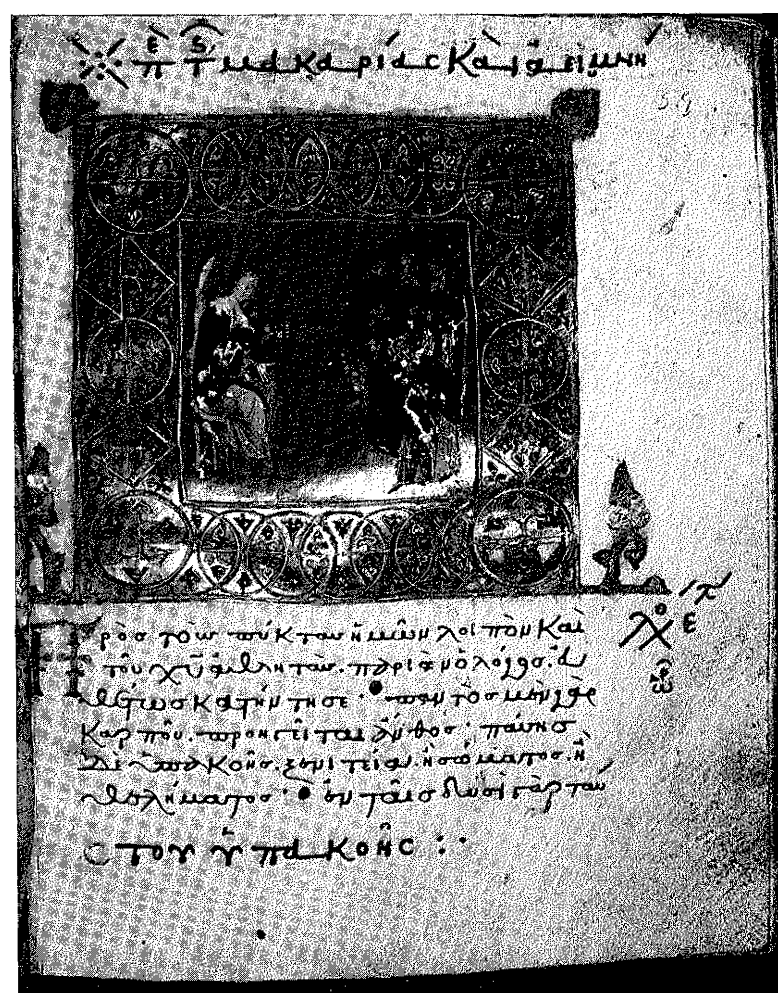 π τ μακαρίας καὶ ἀειμνή
Πρὸς τοὺς πύκτας ἡμῶν λοιπὸν καὶ
τοῦ χῦ ἀθλητὰς. περὶ ὧν ὁ λόγος.
κατήντησε· παντὸς μὲν γὰρ
καρποῦ. προηγεῖται ἄνθος· πάσης
δὲ ὑπακοῆς. ξενιτεία. ἢ σώματος. ἢ
θελήματος· ἐν ταῖς δυσὶ γὰρ ταύ
στου ὑπακοῆς :·